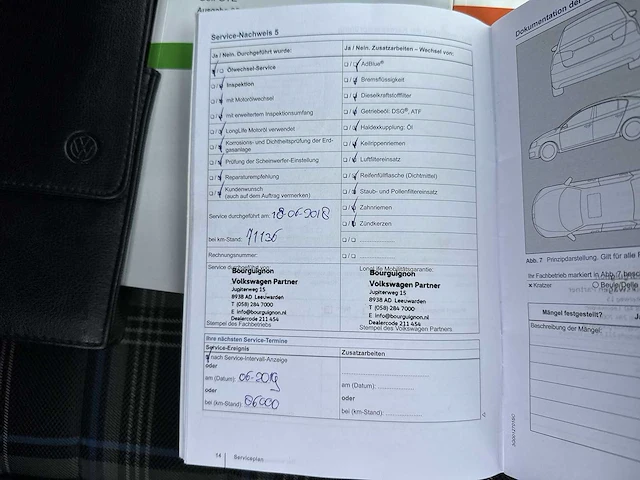 Service-Nachweis 5
Ja / Nein. Durchgeführt wurde:
Ölwechsel-Service
Inspektion
mit Motorölwechsel
mit erweitertem Inspektionsumfang
LongLife Motoröl verwendet
Korrosions- und Dichtheitsprüfung der Erd-
gasanlage
Prüfung der Scheinwerfer-Einstellung
Reparaturempfehlung
Kundenwunsch
(auch auf dem Auftrag vermerken)
Service durchgeführt am: 18-06-2018
bei km-Stand: 71136
Rechnungsnummer:
Service durchgeführt von:
Bourguignon
Volkswagen Partner
Jupiterweg 15
8938 AD Leeuwarden
T (058) 284 7000
E info@bourguignon.nl
Dealercode 211 454
Stempel des Fachbetriebs
Ja / Nein. Zusatzarbeiten – Wechsel von:
AdBlue®
Bremsflüssigkeit
Dieselkraftstofffilter
Getriebeöl: DSG®, ATF
Haldexkupplung: Öl
Keilrippenriemen
Luftfiltereinsatz
Reifenfüllflasche (Dichtmittel)
Staub- und Pollenfiltereinsatz
Zahnriemen
Zündkerzen
LongLife Mobilitätsgarantie:
Bourguignon
Volkswagen Partner
Jupiterweg 15
8938 AD Leeuwarden
T (058) 284 7000
E info@bourguignon.nl
Dealercode 211 454
Stempel des Volkswagen Partners
Ihre nächsten Service-Termine
Service-Ereignis
nach Service-Intervall-Anzeige
oder
am (Datum): 06-2019
oder
bei (km-Stand):
Zusatzarbeiten
am (Datum):
oder
bei (km-Stand):
14
Serviceplan
Dokumentation der
Abb. 7 Prinzipdarstellung. Gilt für alle
Ihr Fachbetrieb markiert in Abb. 7
x Kratzer
Beule/Delle
Mängel festgestellt?
Beschreibung der Mängel: